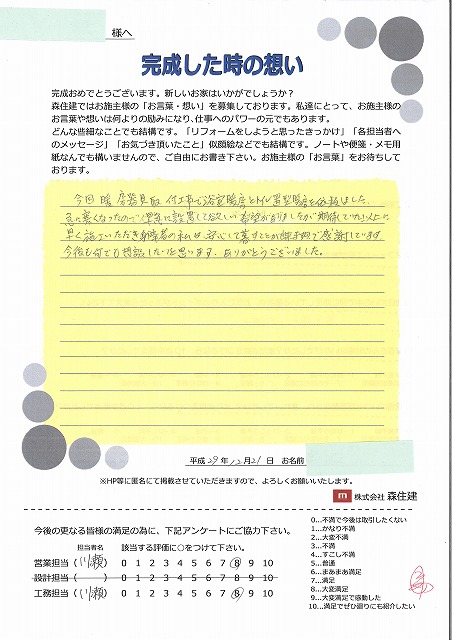 様へ
完成した時の想い
完成おめでとうございます。新しいお家はいかがでしょうか?
森住建ではお施主様の「お言葉・想い」を募集しております。私達にとって、お施主様の
お言葉や想いは何よりの励みになり、仕事へのパワーの元でもあります。
どんな些細なことでも結構です。「リフォームをしようと思ったきっかけ」「各担当者へ
のメッセージ」「お気づき頂いたこと」似顔絵などでも結構です。ノートや便箋・メモ用
紙なんでも構いませんので、ご自由にお書き下さい。お施主様の「お言葉」をお待ちして
おります。
今回 暖房器具取付工事で浴室暖房と
冬に寒くなったので 早急に設置して欲しい希望が
早く施工いただき
今後も何でも相談したいと思います。ありがとうございました。
平成 29年 12月 21日 お名前
※HP等に匿名にて掲載させていただきますので、よろしくお願いいたします。
m 株式会社 森住建
今後の更なる皆様の満足の為に、下記アンケートにご協力下さい。
担当者名 該当する評価に○をつけて下さい。
営業担当(川瀬) 0 1 2 3 4 5 6 7 8 9 10
設計担当( ) 0 1 2 3 4 5 6 7 8 9 10
工務担当(川瀬) 0 1 2 3 4 5 6 7 8 9 10
0…不満で今後は取引したくない
1…かなり不満
2…大変不満
3…不満
4…すこし不満
5…普通
6…まあまあ満足
7…満足
8…大変満足
9…大変満足で感動した
10…満足でぜひ周りにも紹介したい